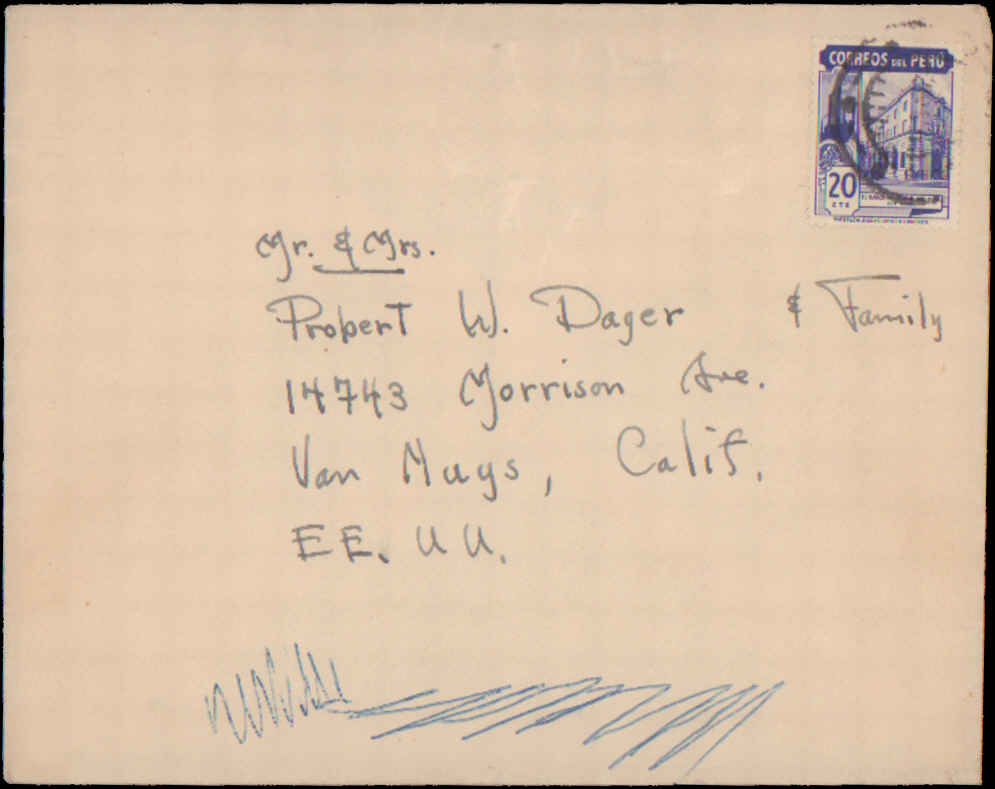 CORREOS DEL PERÚ
20
CTS
Mr. & Mrs.
Robert W. Dager & Family
14743 Morrison Ave.
Van Nuys, Calif.
EE. UU.